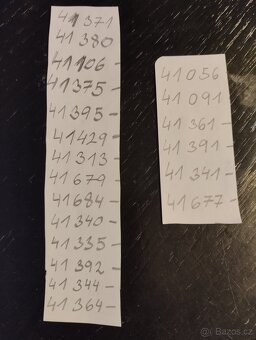 41 371
41 380
41 106 -
41 375 -
41 395 -
41 429 -
41 313 -
41 679 -
41 684 -
41 340 -
41 335 -
41 392 -
41 344 -
41 364 -
41 056
41 091
41 361 -
41 391 -
41 341 -
41 677 -
Bazos.cz